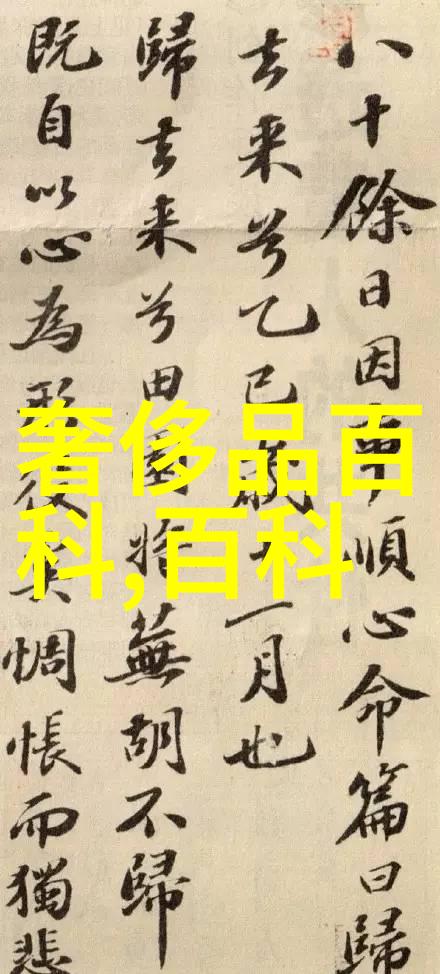 八十餘日因事順心命篇曰歸
去来兮乙巳歲十一月也
歸去来兮田園将蕪胡不歸
既自以心為形役奚惆悵而獨悲
奢侈品百
科,百科